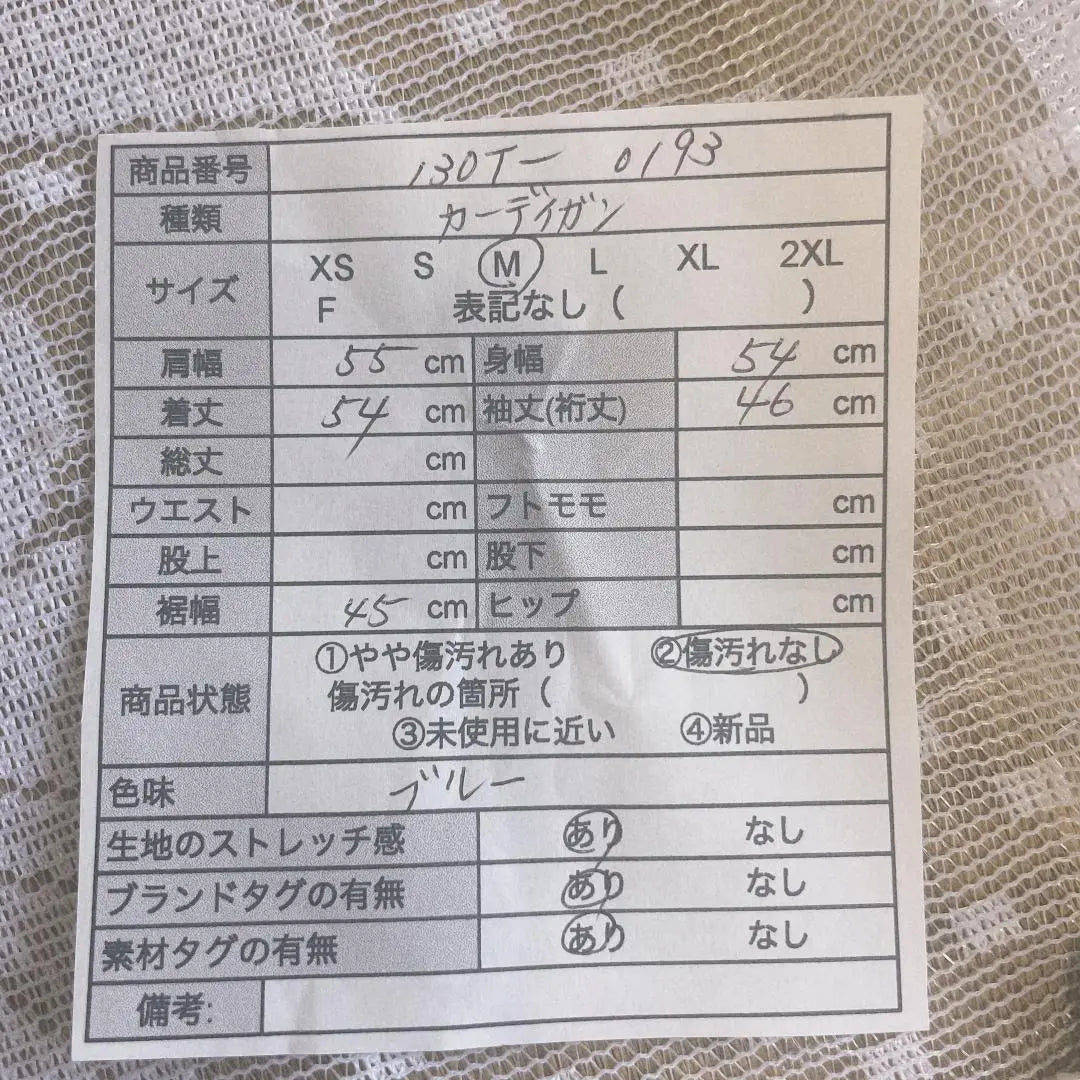 商品番号 130T- 0193
種類 カーディガン
サイズ XS S M L XL 2XL
F 表記なし ( )
肩幅 55 cm 身幅 54 cm
着丈 54 cm 袖丈(裄丈) 46 cm
総丈 cm
ウエスト cm フトモモ cm
股上 cm 股下 cm
裾幅 45 cm ヒップ cm
商品状態 ①やや傷汚れあり ②傷汚れなし
傷汚れの箇所 ( )
③未使用に近い ④新品
色味 ブルー
生地のストレッチ感 あり なし
ブランドタグの有無 あり なし
素材タグの有無 あり なし
備考: